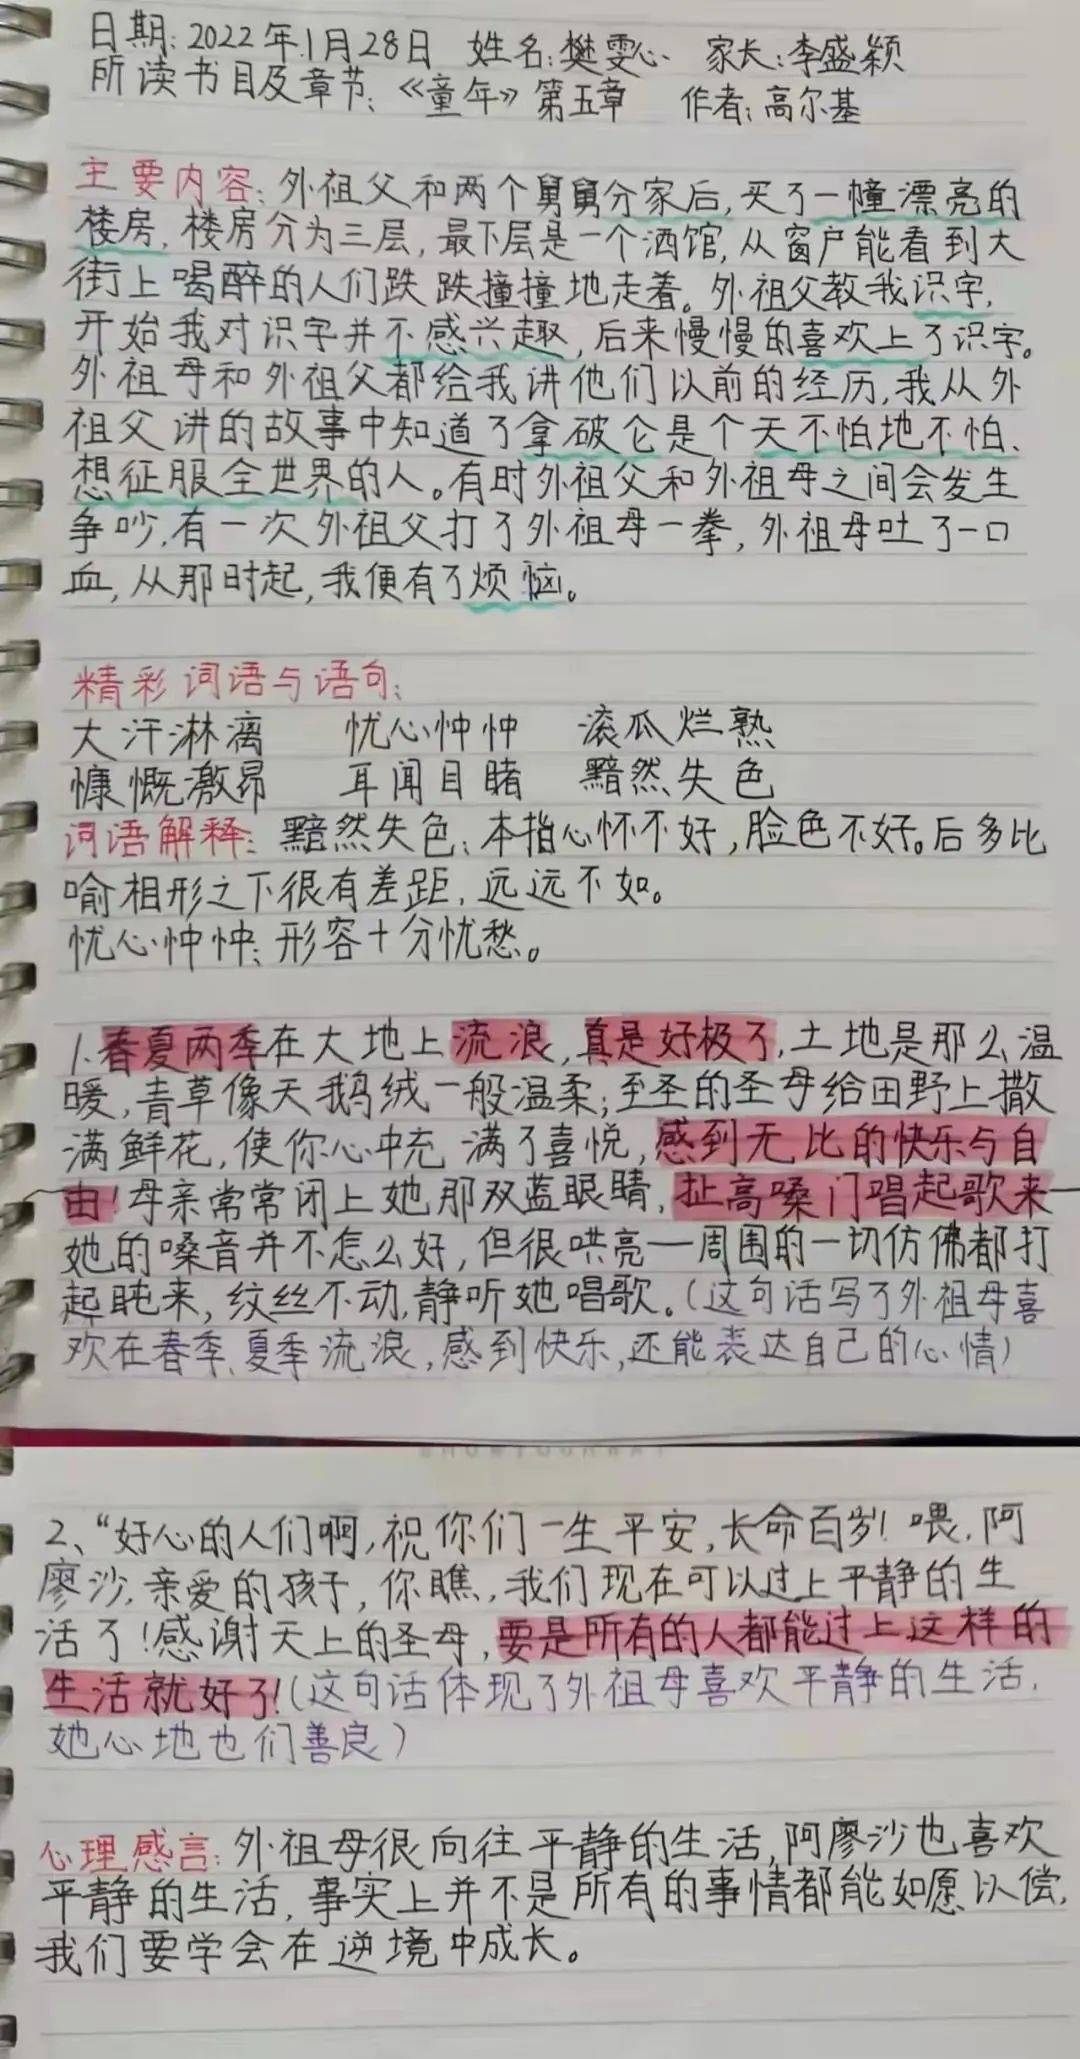 日期:2022年1月28日 姓名:樊雯心 家长:李盛颖
所读书目及章节:《童年》第五章 作者:高尔基
主要内容:外祖父和两个舅舅分家后,买了一幢漂亮的
楼房,楼房分为三层,最下层是一个酒馆,从窗户能看到大
街上喝醉的人们跌跌撞撞地走着。外祖父教我识字,
开始我对识字并不感兴趣,后来慢慢的喜欢上了识字。
外祖母和外祖父都给我讲他们以前的经历,我从外
祖父讲的故事中知道了拿破仑是个天不怕地不怕、
想征服全世界的人。有时外祖父和外祖母之间会发生
争吵,有一次外祖父打了外祖母一拳,外祖母吐了一口
血,从那时起,我便有了烦恼。
精彩词语与语句:
大汗淋漓 忧心忡忡 滚瓜烂熟
慷慨激昂 耳闻目睹 黯然失色
词语解释:黯然失色:本指心怀不好,脸色不好。后多比
喻相形之下很有差距,远远不如。
忧心忡忡:形容十分忧愁。
1、春夏两季在大地上流浪,真是好极了,土地是那么温
暖,青草像天鹅绒一般温柔;至圣的圣母给田野上撒
满鲜花,使你心中充满了喜悦,感到无比的快乐与自
由!母亲常常闭上她那双蓝眼睛,扯高嗓门唱起歌来—
她的嗓音并不怎么好,但很哄亮—周围的一切仿佛都打
起盹来,纹丝不动,静听她唱歌。(这句话写了外祖母喜
欢在春季、夏季流浪,感到快乐,还能表达自己的心情)
2、“好心的人们啊,祝你们一生平安,长命百岁!喂,阿
廖沙,亲爱的孩子,你瞧,我们现在可以过上平静的生
活了!感谢天上的圣母,要是所有的人都能过上这样的
生活就好了!(这句话体现了外祖母喜欢平静的生活,
她心地也们善良)
心理感言:外祖母很向往平静的生活,阿廖沙也喜欢
平静的生活,事实上并不是所有的事情都能如愿以偿,
我们要学会在逆境中成长。